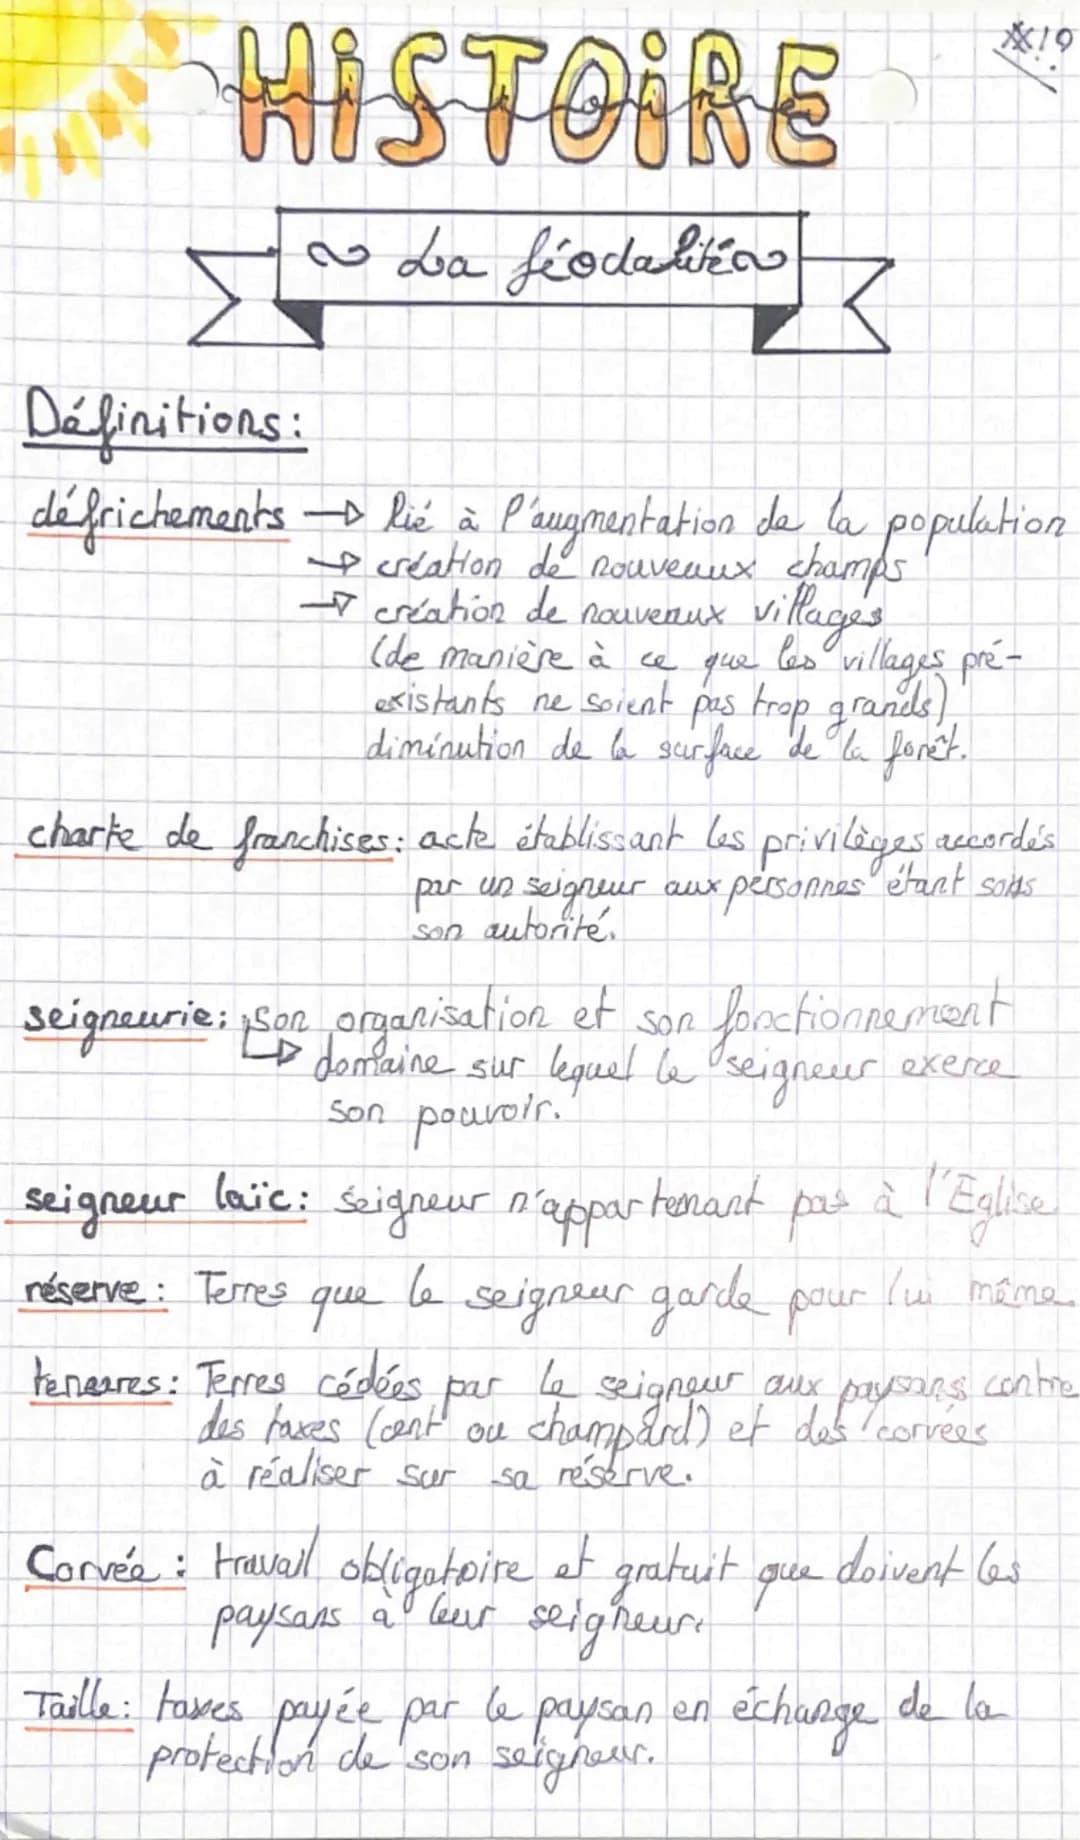 HiSTOiRE
La féodalité
Définitions:
défrichements → lié à l'augmentation de la population
→ création de nouveaux champs
→ création de nouveaux villages
(de manière à ce que les villages pré-
existants ne soient pas trop grands)
diminution de la surface de la forêt.
charte de franchises: acte établissant les privilèges accordés
par un seigneur aux personnes étant sous
son autorité.
seigneurie: son organisation et son fonctionnement
↳ domaine sur lequel le seigneur exerce
son pouvoir.
seigneur laïc: seigneur n'appartenant pas à l'Eglise
réserve: Terres que le seigneur garde pour lui même.
tenures: Terres cédées par le seigneur aux paysans contre
des taxes (cent ou champard) et des corvées
à réaliser sur sa réserve.
Corvée: travail obligatoire et gratuit que doivent les
paysans à leur seigneur.
Taille: taxes payée par le paysan en échange de la
protection de son seigneur.